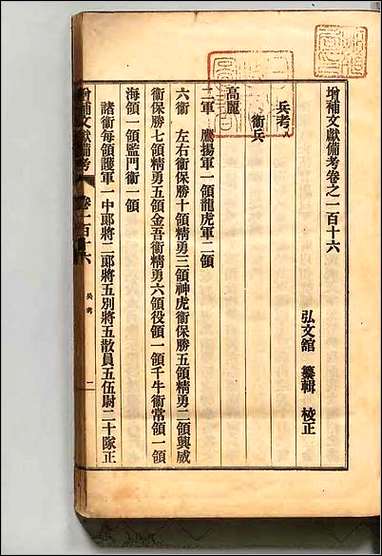 增補文獻備考卷之一百十六
弘文館 纂輯 校正
兵考八
衛兵
高麗
二軍 鷹揚軍一領龍虎軍二領
六衛 左右衛保勝十領精勇三領神虎衛保勝五領精勇二領興威
衛保勝七領精勇五領金吾衛精勇六領役領一領千牛衛常領一領
海領一領監門衛一領
諸衛每領護軍一中郎將二郎將五別將五散員五伍尉二十隊正
增補文獻備考 卷一百十六 兵考 一